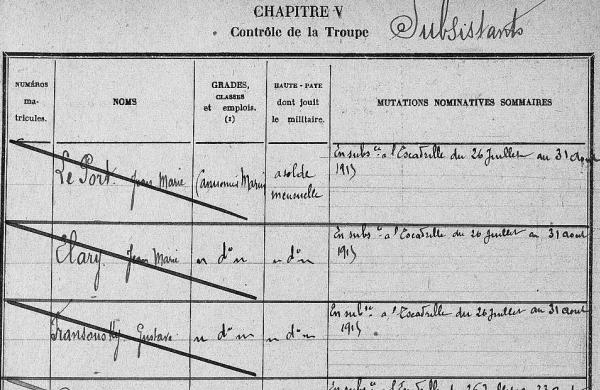 CHAPITRE V
Contrôle de la Troupe
Subsistants
NUMÉROS
ma-
tricules.
NOMS
GRADES,
CLASSES
et emplois.
(1)
HAUTE-PAYE
dont jouit
le militaire.
MUTATIONS NOMINATIVES SOMMAIRES
Le Port Jean Marie
Canonnier Marin
a solde
mensuelle
En subs ce a l'Escadrille du 26 Juillet au 31 Aout
1915
Clary Jean Marie
" d° "
" d° "
En subs ce a l'Escadrille du 26 Juillet au 31 aout
1915
Gustave
" d° "
" d° "
En subs ce a l'Escadrille du 26 Juillet au 31 aout
1915